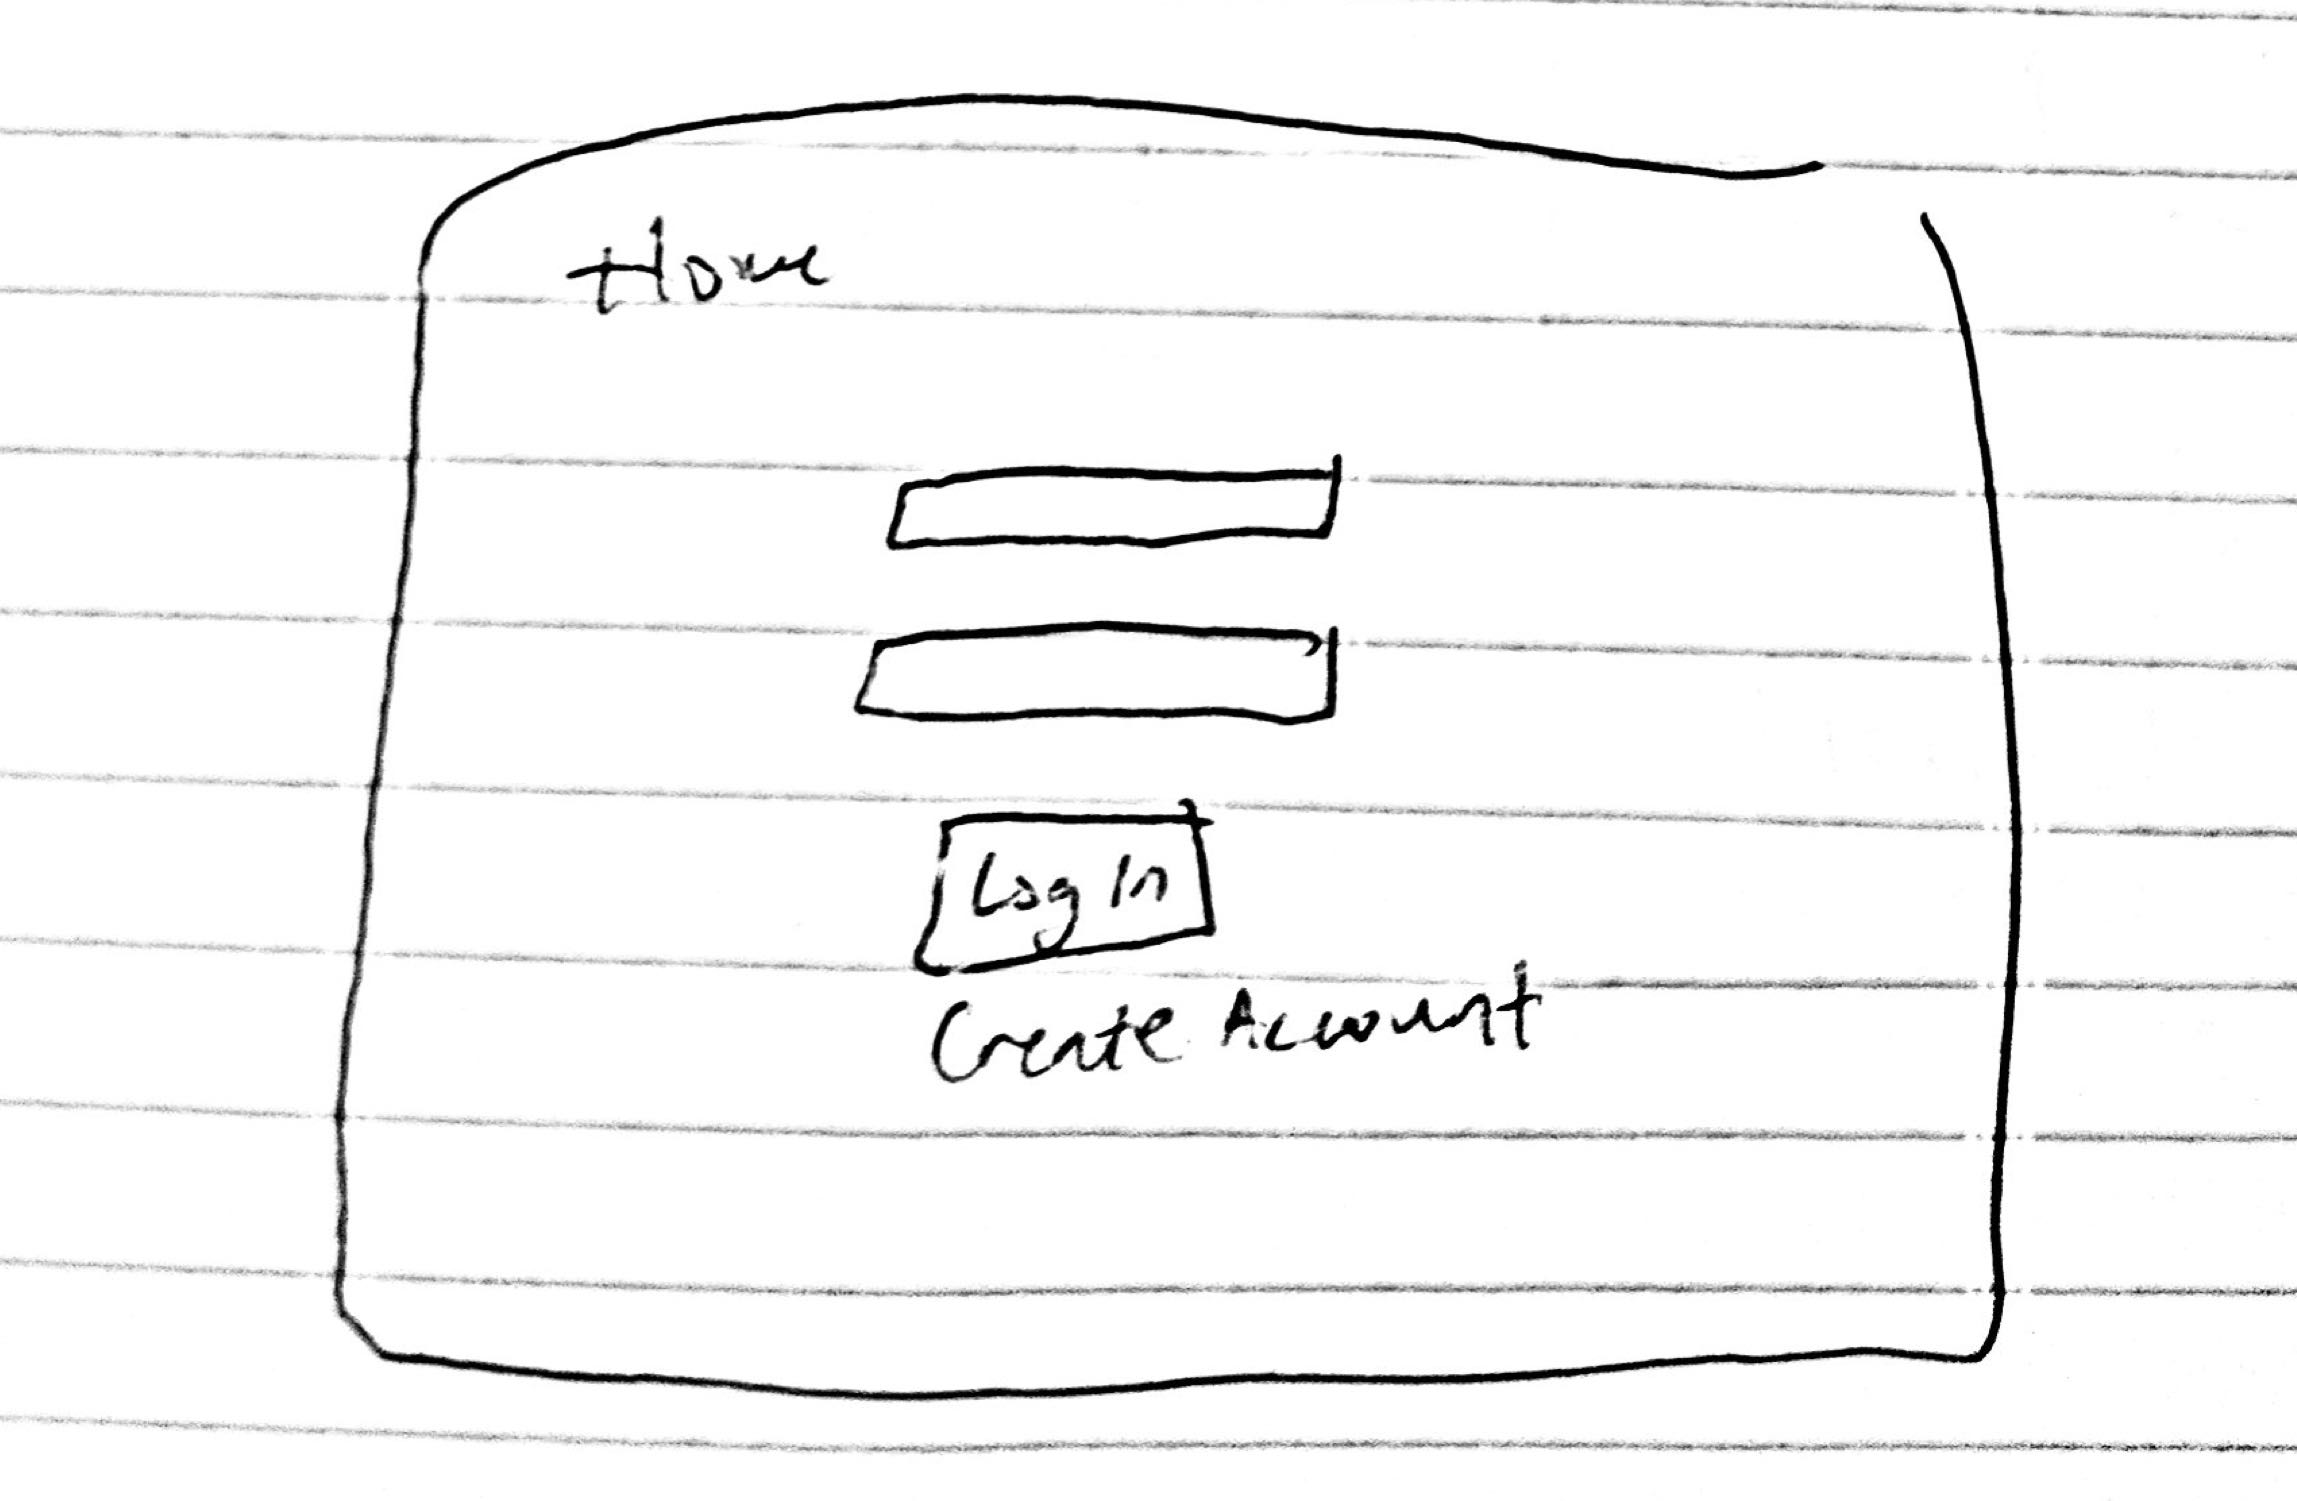 Home
Log In
Create Account